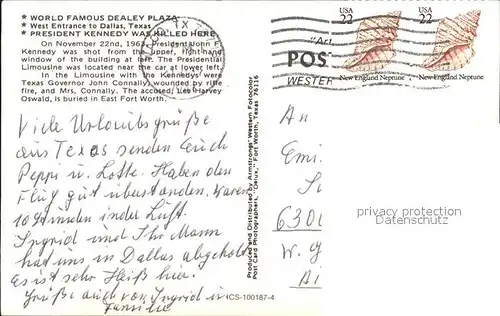 ★ WORLD FAMOUS DEALEY PLAZA
★ West Entrance to Dallas, Texas
★ PRESIDENT KENNEDY WAS KILLED HERE
On November 22nd, 1963, President John F.
Kennedy was shot from the upper, right-hand
window of the building at left. The Presidential
Limousine was located near the car at lower left.
In the Limousine with the Kennedys were
Texas Governor John Connally, wounded by rifle
fire, and Mrs. Connally. The accused, Lee Harvey
Oswald, is buried in East Fort Worth.
TX
Viele Urlaubsgrüße
aus Texas senden Euch
Peppi u. Lotte. Haben den
Flug gut überstanden. Waren
10 Stunden in der Luft.
Ingrid und Ihr Mann
hat uns in Dallas abgeholt
Es ist sehr Heiß hier.
Grüße auch von Ingrid u
Familie
Produced and Distributed by Armstrongs' Western Fotocolor
Post Card Photographers, "Delux," Fort Worth, Texas 76116
ICS-100187-4
USA
22
USA
22
New England Neptune
New England Neptune
"Ar
POS
WESTER
An
Emi
6300
W. G
privacy protection
oldthing.de